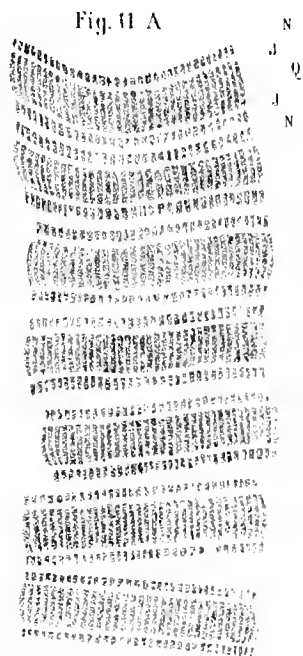 Fig. 11 A
N
J
Q
J
N